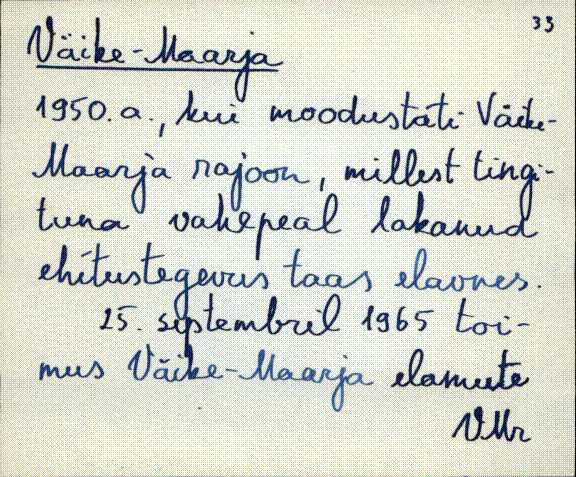 33
Väike-Maarja
1950. a., kui moodustati Väike-
Maarja rajoon, millest tingi-
tuna vahepeal lakanud
ehitustegevus taas elavnes.
25. septembril 1965 toi-
mus Väike-Maarja elamute
VMr